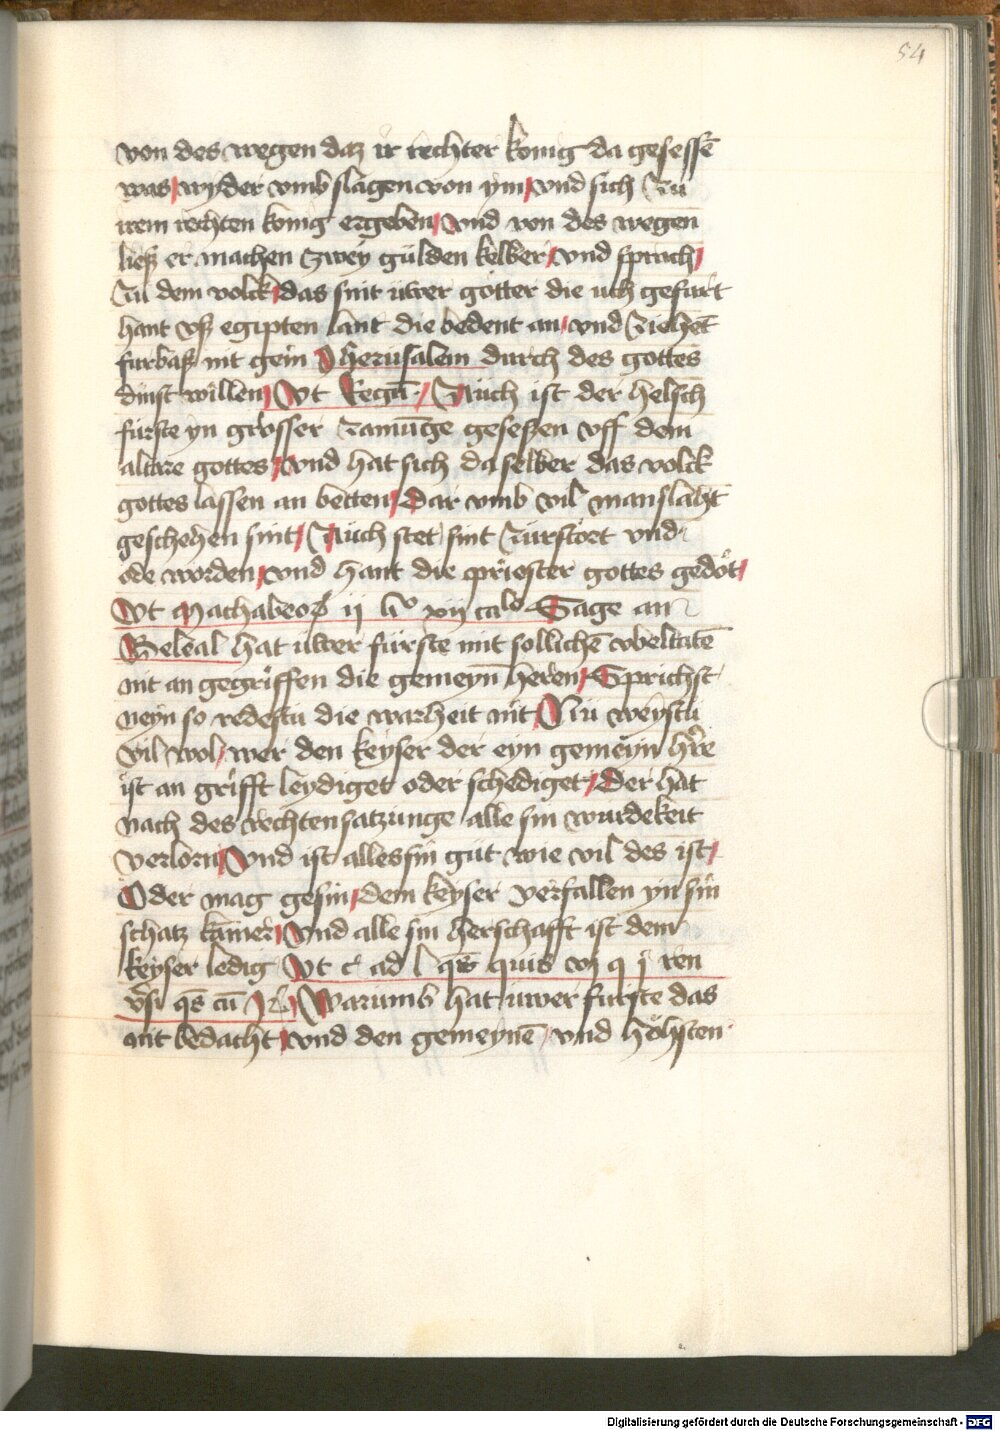 54
von des wegen daz ir rechter konig da gesessē
was / wyder vmb slagen von ym / vnd sich zu
irem rechten konig ergeben / vnd von des wegen
ließ er machen zwey gulden kelber / vnd sprach /
zu dem volck / das sint uwer götter die uch gefurt
hant vß egipten lant die bedent an / vnd ziehēt
furbaß nit gein Jherusalem durch des gottes
dinst willen / Vt Regū / Auch ist der helsch
furste yn grosser zamūge geseßen vff dem
altare gottes / vnd hat sich da selber das volck
gottes lassen an betten / Dar vmb vil manslaht
geschehen sint / Auch stet sint zurstort vnd
öde worden / vnd hant die priester gottes gedöt /
Vt Machabeoꝝ ij li° xij calo Sage an
Beleal hat uwer fürste mit sollichē vbeltatē
nit an gegriffen die gemeyn̄ heren / Sprichst
neyn so redestu die warheit nit / Nu weystu
vil wol / wer den keyser der eyn gemeyn h're
ist an grifft leydiget oder schediget / Der hat
nach des rechten satzunge alle sin wurdekeit
verlorn / Vnd ist alles sin gut wie vil des ist /
Oder mag gesin / dem keyser verfallen yn sin
schatz kamer / Vnd alle sin herschafft ist dem
keyser ledig Vt c ad l quis
Warumb hat uwer furste das
nit bedacht / vnd den gemeynē / vnd höhsten
Digitalisierung gefördert durch die Deutsche Forschungsgemeinschaft - DFG